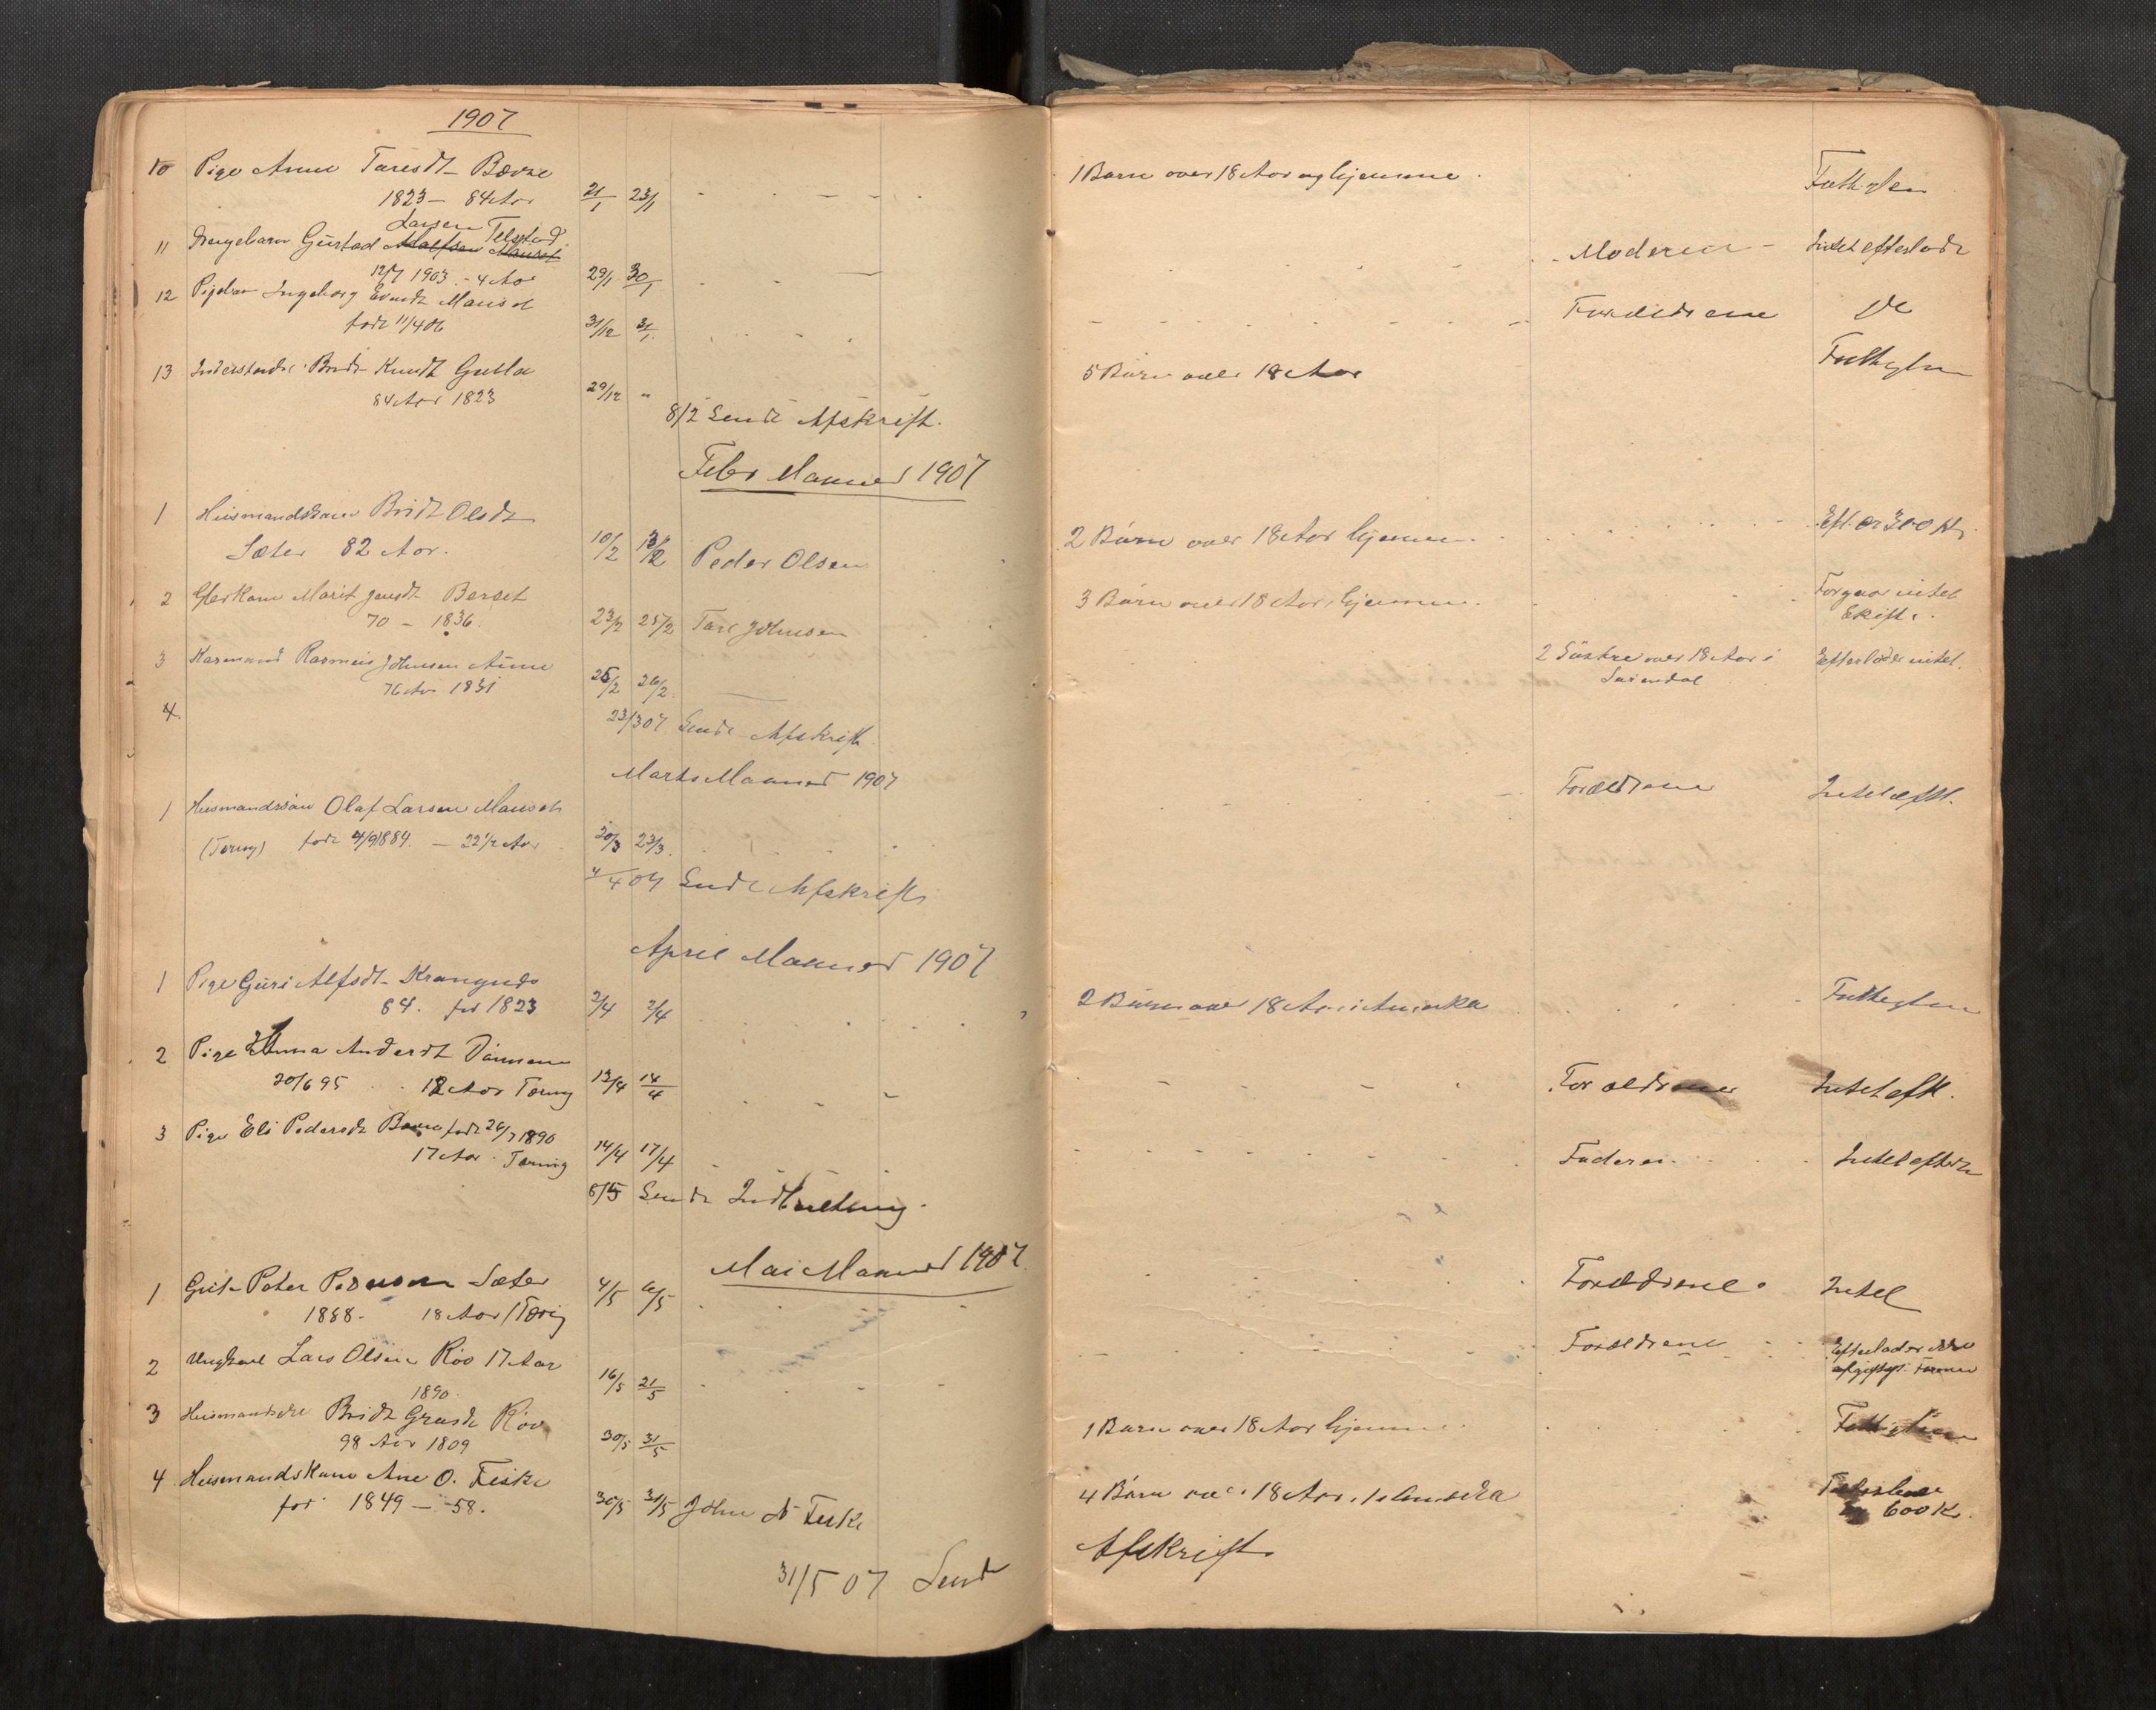 1907
10 Pige Anne Taresdt Bævre
1823 - 84 Aar 21/1 23/1 1 Barn over 18 Aar og hjemme. Fattiglem
Larsen Telstad
11 Drengebarn Gustad
12/7 1903 - 4 Aar 29/1 30/1 Moderen Intet efterladt
12 Pigebarn Ingeborg Mauset
født 11/4 06 31/12 3/1 Forældrene Do
13 Inderstenke Brit Knudt Gulla
84 Aar 1823 29/12 " 5 Børn over 18 Aar Fattiglem
8/2 Sendt Afskrift.
Febr Maaned 1907
1 Husmandskone Brit Olsdt
Sæter 82 Aar. 10/2 13/2 Peder Olsen 2 Børn over 18 Aar hjemme. 300 Kr
2 Marit Berset
70 - 1836. 23/2 25/2 Tare Johnsen 3 Børn over 18 Aar, hjemme. Forgaar intet Skifte.
3 Rasmus Johnsen Aune
76 Aar 1831 25/2 26/2 2 Søstre over 18 Aar i Surendal Efterlader intet.
4. 23/3 07 Sendt Afskrift
Marts Maaned 1907
1 Husmandssøn Olaf Larsen Mauset
(Tæring) født 4/9 1884. - 22 1/2 Aar 20/3 23/3. Forældrene Intet eftl.
4/4 07 Sendt Afskrift
April Maaned 1907
1 Pige Guri Alfsdt
84. før 1823 2/4 2/4 2 Børn over 18 Aar i Amerika Fattiglem
2 Pige Anna Andersdt
20/6 95 12 Aar Tæring 13/4 14/4 Forældrene Intet eft.
3 Pige Eli Pedersdt født 26/7 1890
17 Aar. Tæring 14/4 17/4 Faderen. Intet efterl
6/5 Sendt Indberetning.
Mai Maaned 1907
1 Gut Peter Pedersen Sæter
1888. 18 Aar (Tæring 4/5 6/5 Forældrene Intet
2 Ungkarl Lars Olsen Røv 17 Aar
1890 16/5 21/5 Forældrene Efterlader ikke
3 Brit Røv
98 Aar 1809 30/5 31/5 1 Barn over 18 Aar hjemme Fattiglem
4 Husmandskone Ane O. Fiske
før 1849 - 58. 30/5 31/5 John Fiske 4 Børn over 18 Aar, 1 i Amerika 600 K.
31/5 07 Sendt Afskrift